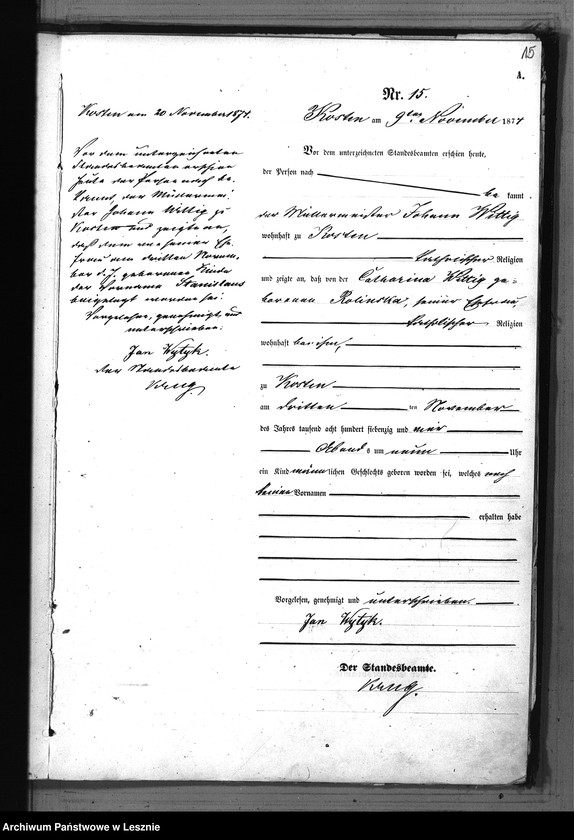 15
A.
Nr. 15.
Kosten am 9ten November 1874
Vor dem unterzeichneten Standesbeamten erschien heute,
der Person nach
be kannt,
der Müllermeister Johann Wittig
wohnhaft zu Kosten
katholischer Religion
und zeigte an, daß von der Catharina Wittig ge-
borenen Rolinska, seiner Ehefrau
katholischer Religion
wohnhaft bei ihm,
zu Kosten
am dritten ten November
des Jahres tausend acht hundert siebenzig und vier
Abends um neun Uhr
ein Kind männlichen Geschlechts geboren worden sei, welches noch
keinen Vornamen
erhalten habe
Vorgelesen, genehmigt und unterschrieben.
Jan Wytyk.
Der Standesbeamte.
Krug.
Kosten am 20 November 1874.
Vor dem unterzeichneten
Standesbeamten erschien
heute der Person nach be-
kannt, der Müllermei-
ster Johann Wittig zu
Kosten und zeigte an,
daß dem von seiner Ehe-
frau am dritten Novem-
ber d. J. geborenen Kinde
der Vorname Stanislaus
beigelegt worden sei.
Vorgelesen, genehmigt und
unterschrieben:
Jan Wytyk.
Der Standesbeamte
Krug
Archiwum Państwowe w Lesznie